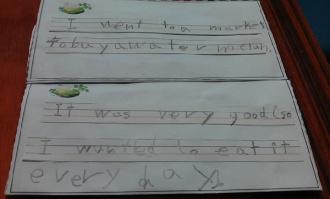 I went to a market
to buy a water melon.
It was very good (so
I wanted to eat it
every day.